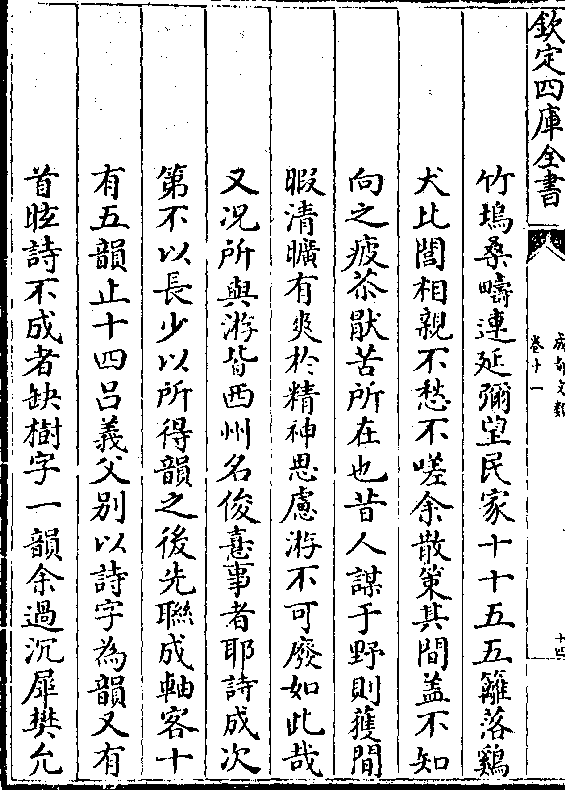 欽定四庫全書
卷十一
十四
竹塢桑疇連延彌望民家十十五五籬落鷄
犬比閭相親不愁不嗟余散策其間盖不知
向之疲苶厭苦所在也昔人謀于野則獲閒
暇清曠有爽於精神思慮游不可廢如此哉
又况所與游皆西州名俊憙事者耶詩成次
第不以長少以所得韻之後先聯成軸客十
有五韻止十四吕義父别以詩字為韻又有
首眩詩不成者缺樹字一韻余過沉犀樊允